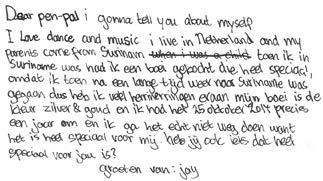 Dear pen-pal i gonna tell you about myself
I Love dance and music i live in Netherland and my
parents come from Surinam when i was a child toen ik in
Suriname was had ik een boei gekocht die heel speciaal,
omdat ik toen na een lange tijd weer naar Suriname was
gegaan dus heb ik veel herinneringen eraan mijn boei is de
kleur zilver & goud en ik had het 25 oktober 2014 precies
een jaar om en ik ga het echt niet weg doen want
het is heel speciaal voor mij. heb jij ook iets dat heel
speciaal voor jou is?
groeten van: jay